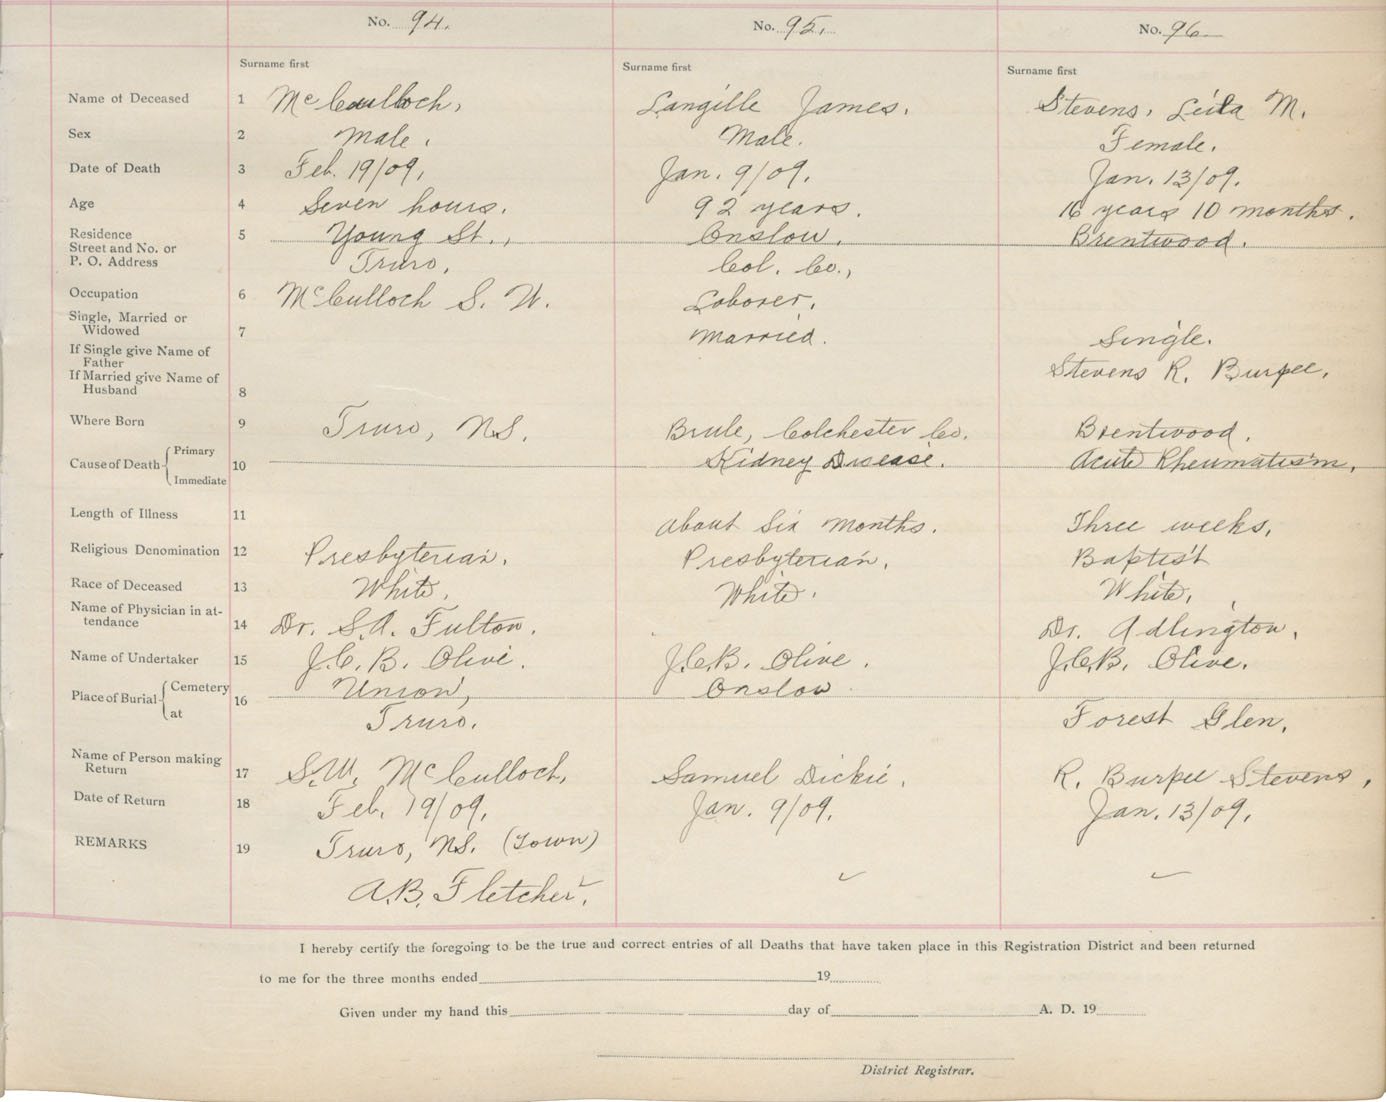 No. 94. No. 95. No. 96
Surname first Surname first Surname first
Name of Deceased 1 McCulloch, Langille James. Stevens, Leila M.
Sex 2 Male. Male. Female.
Date of Death 3 Feb. 19/09, Jan. 9/09. Jan. 13/09.
Age 4 Seven hours. 92 years. 16 years 10 months.
Residence 5 Young St., Onslow, Brentwood.
Street and No. or
P. O. Address Truro, Col. Co.,
Occupation 6 McCulloch S. W. Laborer.
Single, Married or
Widowed 7 Married. Single.
If Single give Name of
Father Stevens R. Burpee.
If Married give Name of
Husband 8
Where Born 9 Truro, N.S. Brule, Colchester Co. Brentwood.
Cause of Death Primary
10 Kidney Disease. Acute Rheumatism.
Immediate
Length of Illness 11 About Six months. Three weeks.
Religious Denomination 12 Presbyterian. Presbyterian. Baptist
Race of Deceased 13 White. White. White.
Name of Physician in at-
tendance 14 Dr. S.A. Fulton. Dr. Adlington.
Name of Undertaker 15 J.C.B. Olive. J.C.B. Olive. J.C.B. Olive.
Place of Burial Cemetery 16 Union, Onslow
at Truro. Forest Glen.
Name of Person making
Return 17 S.W. McCulloch, Samuel Dickie. R. Burpee Stevens,
Date of Return 18 Feb. 19/09. Jan. 9/09. Jan. 13/09.
REMARKS 19 Truro, N.S. (Town)
A.B. Fletcher.
I hereby certify the foregoing to be the true and correct entries of all Deaths that have taken place in this Registration District and been returned
to me for the three months ended 19
Given under my hand this day of A. D. 19
District Registrar.